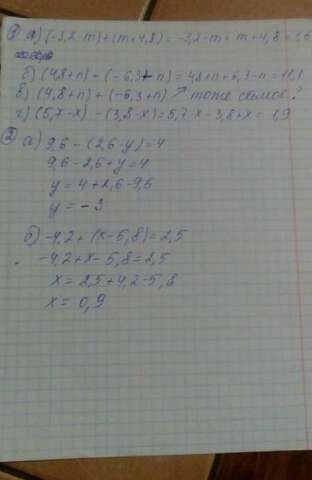 ① а) (-3,2-m)+(m+4,8)=-3,2-m+m+4,8=1,6
б) (4,8+n)-(-6,3+n)=4,8+n+6,3-n=11,1
в) (4,8+n)+(-6,3+n) ↗ тоже самое?
г) (5,7-x)-(3,8-x)=5,7-x-3,8+x=1,9
② а) 9,6-(2,6-y)=4
9,6-2,6+y=4
y=4+2,6-9,6
y=-3
б) -4,2+(x-5,8)=2,5
-4,2+x-5,8=2,5
x=2,5+4,2-5,8
x=0,9